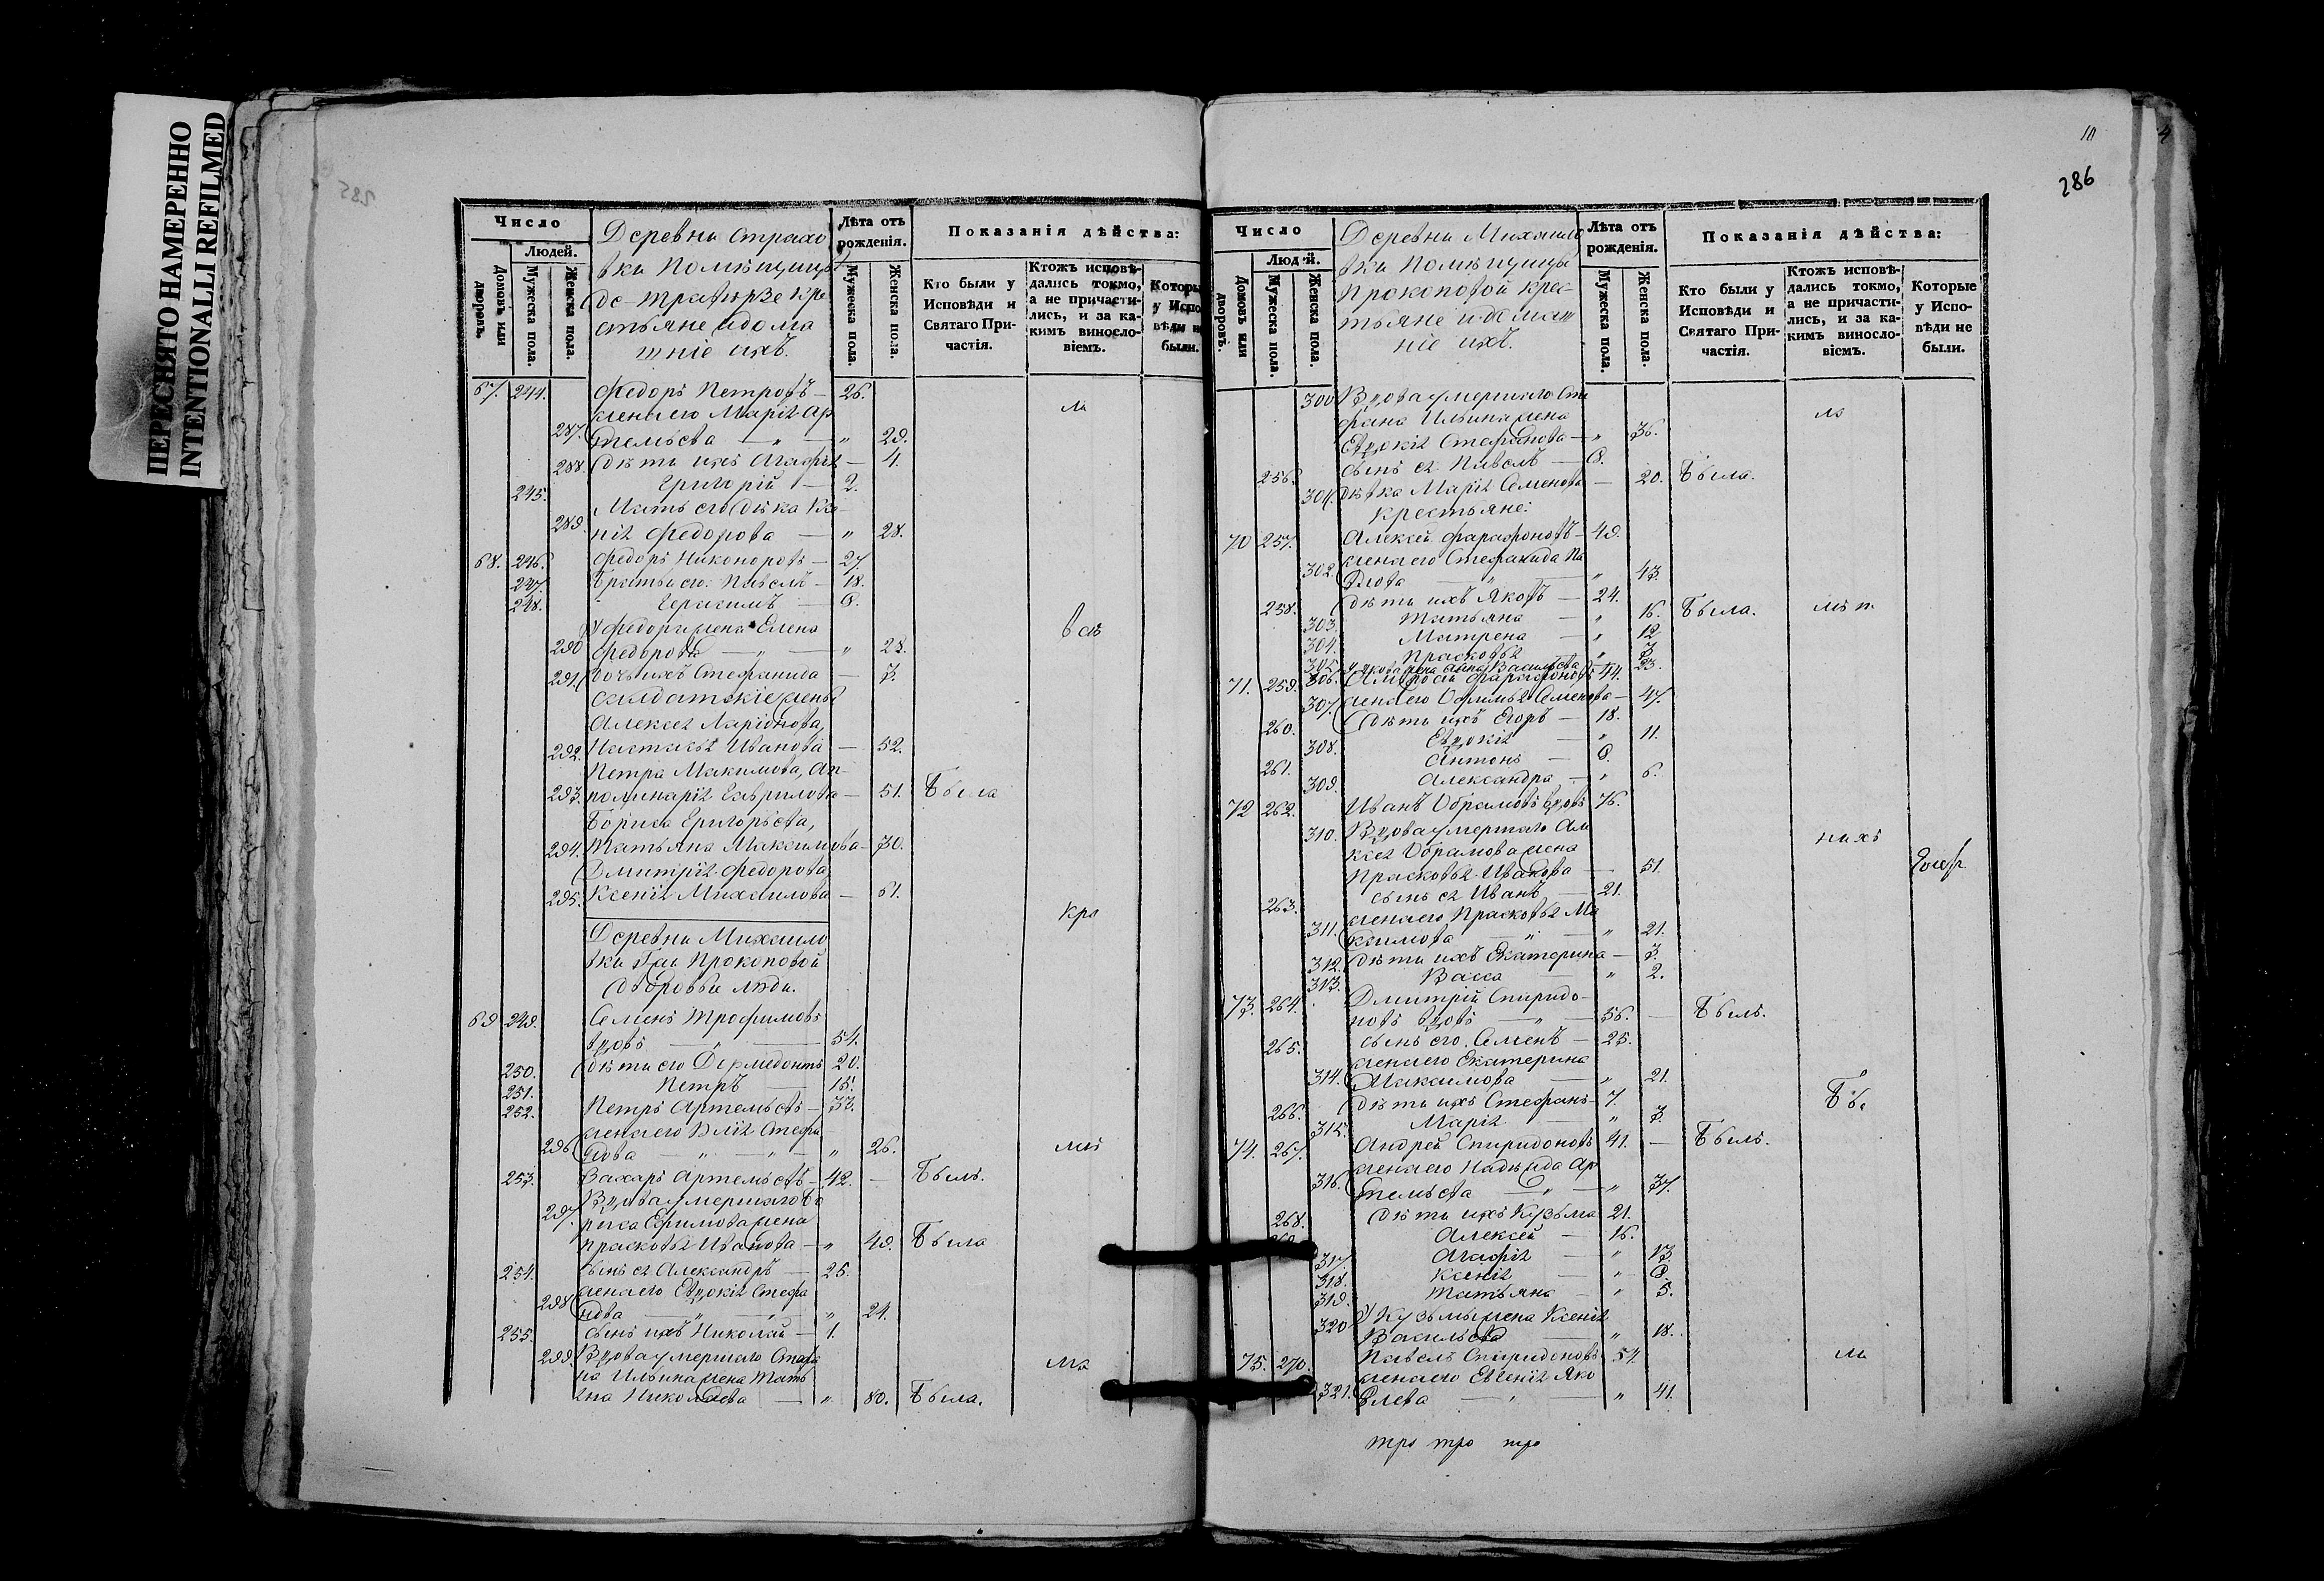 ПЕРЕСНЯТО НАМЕРЕННО
INTENTIONALLI REFILMED
285
Число
Людей.
Домовъ или дворовъ.
Мужеска пола.
Женска пола.
Деревни Страхо
вки Помѣщицы
де-Траверзе кре
стьяне и дома
шніе ихъ.
Лѣта отъ рожденія.
Мужеска пола.
Женска пола.
Показанія дѣйства:
Кто были у Исповѣди и Святаго При-частія.
Ктожъ исповѣ-дались токмо, а не причасти-лись, и за ка-кимъ винослo-віемъ.
67. 244. Федоръ Петровъ — 26.
жена его Марія Ар
287. темьева — " — " 29.
288. дѣти ихъ Агафія — 4.
245. Григорій — 2.
Мать его Ксе-
289. нія Федорова — " 28.
68. 246. Федоръ Никоноровъ — 27.
247. Братья его: Павелъ — 18.
248. Герасимъ — 9.
У Федора жена Елена
290 Федорова — " — " 23.
291. Дочь ихъ Стефанида — 3.
Салдатскіе жены
Алексея Ларіонова,
292. Настасья Иванова — 52.
Петра Макимова, Ап-
293. полинарія Гаврилова — 51. Была
Бориса Григорьева,
294. Татьяна Максимова — 30.
Дмитрія Федорова,
295. Ксенія Михаилова — 61.
Деревни Михаило
вки Г-жи Прокоповой
Дворовые люди.
69 249. Семенъ Трофимовъ
вдовъ — " — 54.
250. дѣти его Дермедонтъ 20.
251. Петръ — 15.
252. Петръ Артемьевъ — 33.
жена его Юлія Стефа
296 нова — " — " — " 26.
253. Захаръ Артемьевъ — 42. — Былъ.
Вдова умершаго Бо
297. риса Ефимова жена
Прасковья Иванова — " 49. Была
254. сынъ ея Александръ — 25.
жена его Евдокія Стефа
298 нова — " — " — " 24.
255. сынъ ихъ Николай — 1.
299. Вдова умершаго Стефа
на Ильина жена Тать
яна Николаева — " 80. Была.
10
4
286
Число
Людей.
Домовъ или дворовъ.
Мужеска пола.
Женска пола.
Деревни Михаило
вки Помѣщицы
Прокоповой крес-
тьяне и домаш
ніе ихъ.
Лѣта отъ рожденія.
Мужеска пола.
Женска пола.
Показанія дѣйства:
Кто были у Исповѣди и Святаго При-частія.
Ктожъ исповѣ-дались токмо, а не причасти-лись, и за ка-кимъ винослo-віемъ.
Которые у Испо-вѣди не были.
300 Вдова умершаго Сте
фана Ильина жена
Евдокія Стефанова — " 36.
256. сынъ ея Павелъ — 9.
301. дѣвка Марія Семенова — 20. Была.
крестьяне:
70 257. Алексей Фарафоновъ — 49.
жена его Стефанида Па
302. влова — " — " 43.
258. дѣти ихъ Яковъ — 24.
303. Татьяна — " 16. Была.
304. Матрена — " 12
305. Прасковья " 3
306. у Якова жена Анна Васильева 23.
71. 259. Амвросій Фарафоновъ 44.
307. жена его Офимья Семенова — 47.
260. Дѣти ихъ Егоръ — 18.
308. Евдокія — " 11.
261. Антонъ — 9.
309. Александра — " 6.
72 262. Иванъ Обрамовъ вдовъ 76.
310. Вдова умершаго Але
ксея Обрамова жена
Прасковья Иванова — 51.
263. сынъ ея Иванъ — 21.
жена его Прасковья Ма
311. ксимова — " — " 21.
312. дѣти ихъ Екатерина — 3.
313. Васса — " 2.
73. 264. Дмитрій Спиридо-
новъ вдовъ — " — 56. — Былъ.
265. сынъ его Семенъ — 25.
жена его Екатерина
314. Максимова — " 21.
266. дѣти ихъ Стефанъ — 7.
315. Марія — " 3.
74. 267. Андрей Спиридоновъ 41. — Былъ.
жена его Надежда Ар
316. темьева — " — " 37.
268. дѣти ихъ Кузьма 21.
269. Алексей — 16.
317. Агафія — " 13.
318. Ксенія — " 9.
319. Татьяна — " 5.
У Кузьмы жена Ксенія
320 Васильева — " 18.
75. 270. Павелъ Спиридоновъ 54.
жена его Евгенія Яко
321. влева — " — " 41.
тро тро тро